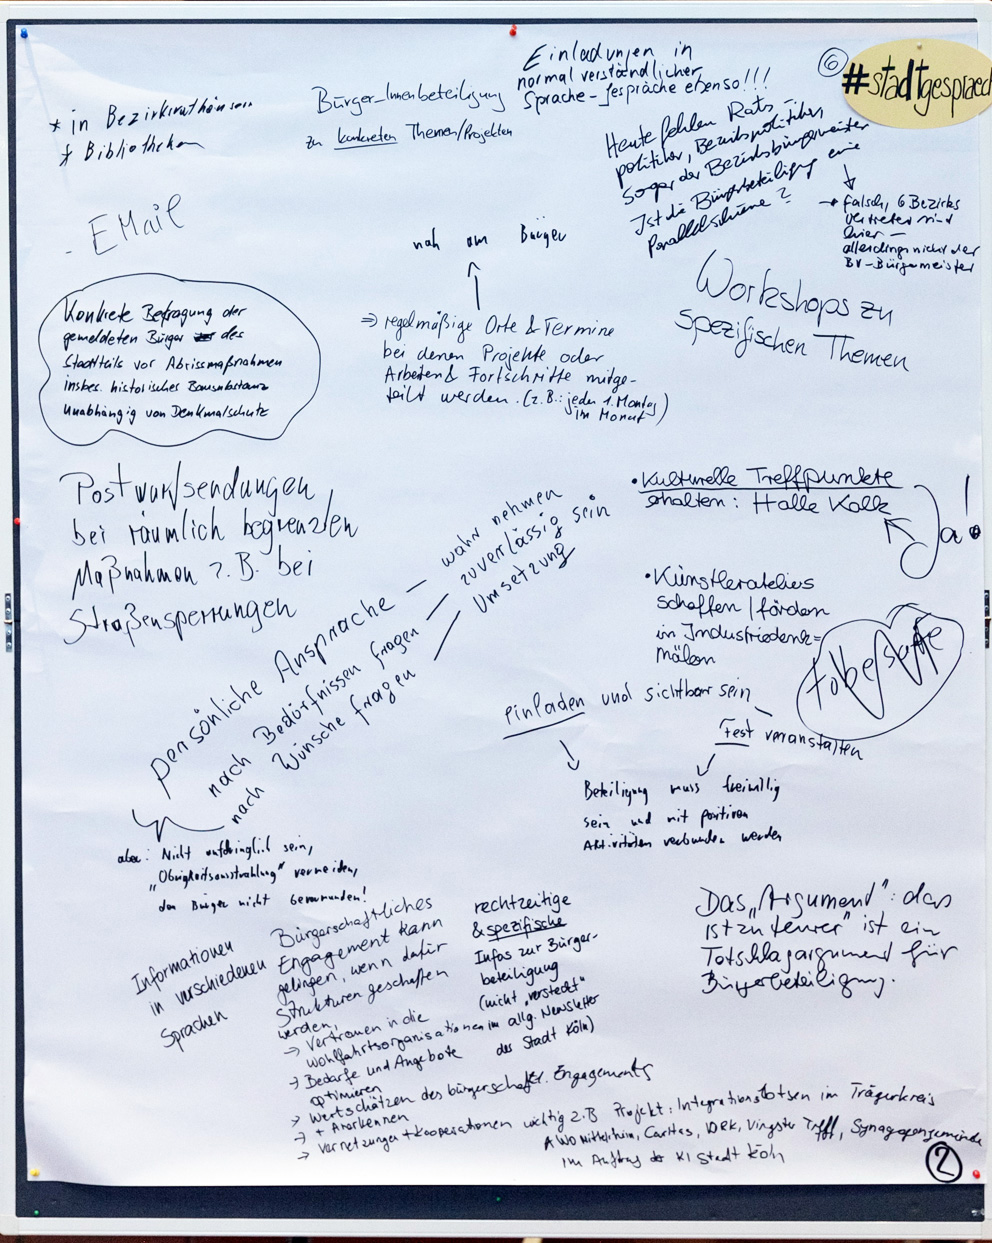 * in Bezirksrathäusern
* Bibliotheken
- EMail
Bürger_Innenbeteiligung
zu konkreten Themen/Projekten
Einladungen in
normal verständlicher
Sprache - Gespräche ebenso!!!
6
#stadtgespraech
Heute fehlen Rats
politiker, Bezirkspolitiker,
sogar der Bezirksbürgermeister
Ist die Bürgerbeteiligung eine
Parallelschiene?
→ falsch, 6 Bezirks
vertreter sind
hier -
allerdings nicht der
BV-Bürgermeister
nah am Bürger
⇒ regelmäßige Orte & Termine
bei denen Projekte oder
Arbeiten & Fortschritte mitge-
teilt werden. (z.B.: jeden 1. Montag
im Monat)
Workshops zu
spezifischen Themen
Konkrete Befragung der
gemeldeten Bürger des
Stadtteils vor Abrissmaßnahmen
insbes. historischer Bausubstanz
Unabhängig von Denkmalschutz
Postwurfsendungen
bei räumlich begrenzten
Maßnahmen z.B. bei
Straßensperrungen
• Kulturelle Treffpunkte
erhalten: Halle Kalk
Ja!
• Künstlerateliers
schaffen / fördern
in Industriedenk=
mälern
persönliche Ansprache — wahrnehmen
nach Bedürfnissen fragen — zuverlässig sein
nach Wünsche fragen — Umsetzung
aber: Nicht aufdringlich sein,
"Obrigkeitsausstrahlung" vermeiden,
den Bürger nicht bevormunden!
einladen und sichtbar sein
Fest veranstalten
Beteiligung muss freiwillig
sein und mit positiven
Aktivitäten verbunden werden
Informationen
in verschiedenen
Sprachen
Bürgerschaftliches
Engagement kann
gelingen, wenn dafür
Strukturen geschaffen
werden,
→ Vertrauen in die
Wohlfahrtsorganisationen
→ Bedarfe und Angebote
optimieren
→ Wertschätzen des bürgerschaftl. Engagements
→ + Anerkennen
→ Vernetzungen + Kooperationen wichtig z.B Projekt: Integrationslotsen im Trägerkreis
AWO Mittelrhein, Caritas, DRK, Vingster Treff, Synagogengemeinde
im Auftrag der KI Stadt Köln
rechtzeitige
& spezifische
Infos zur Bürger-
beteiligung
(nicht "versteckt"
im allg. Newsletter
der Stadt Köln)
Das "Argument": das
ist zu teuer" ist ein
Totschlagargument für
Bürgerbeteiligung.
2